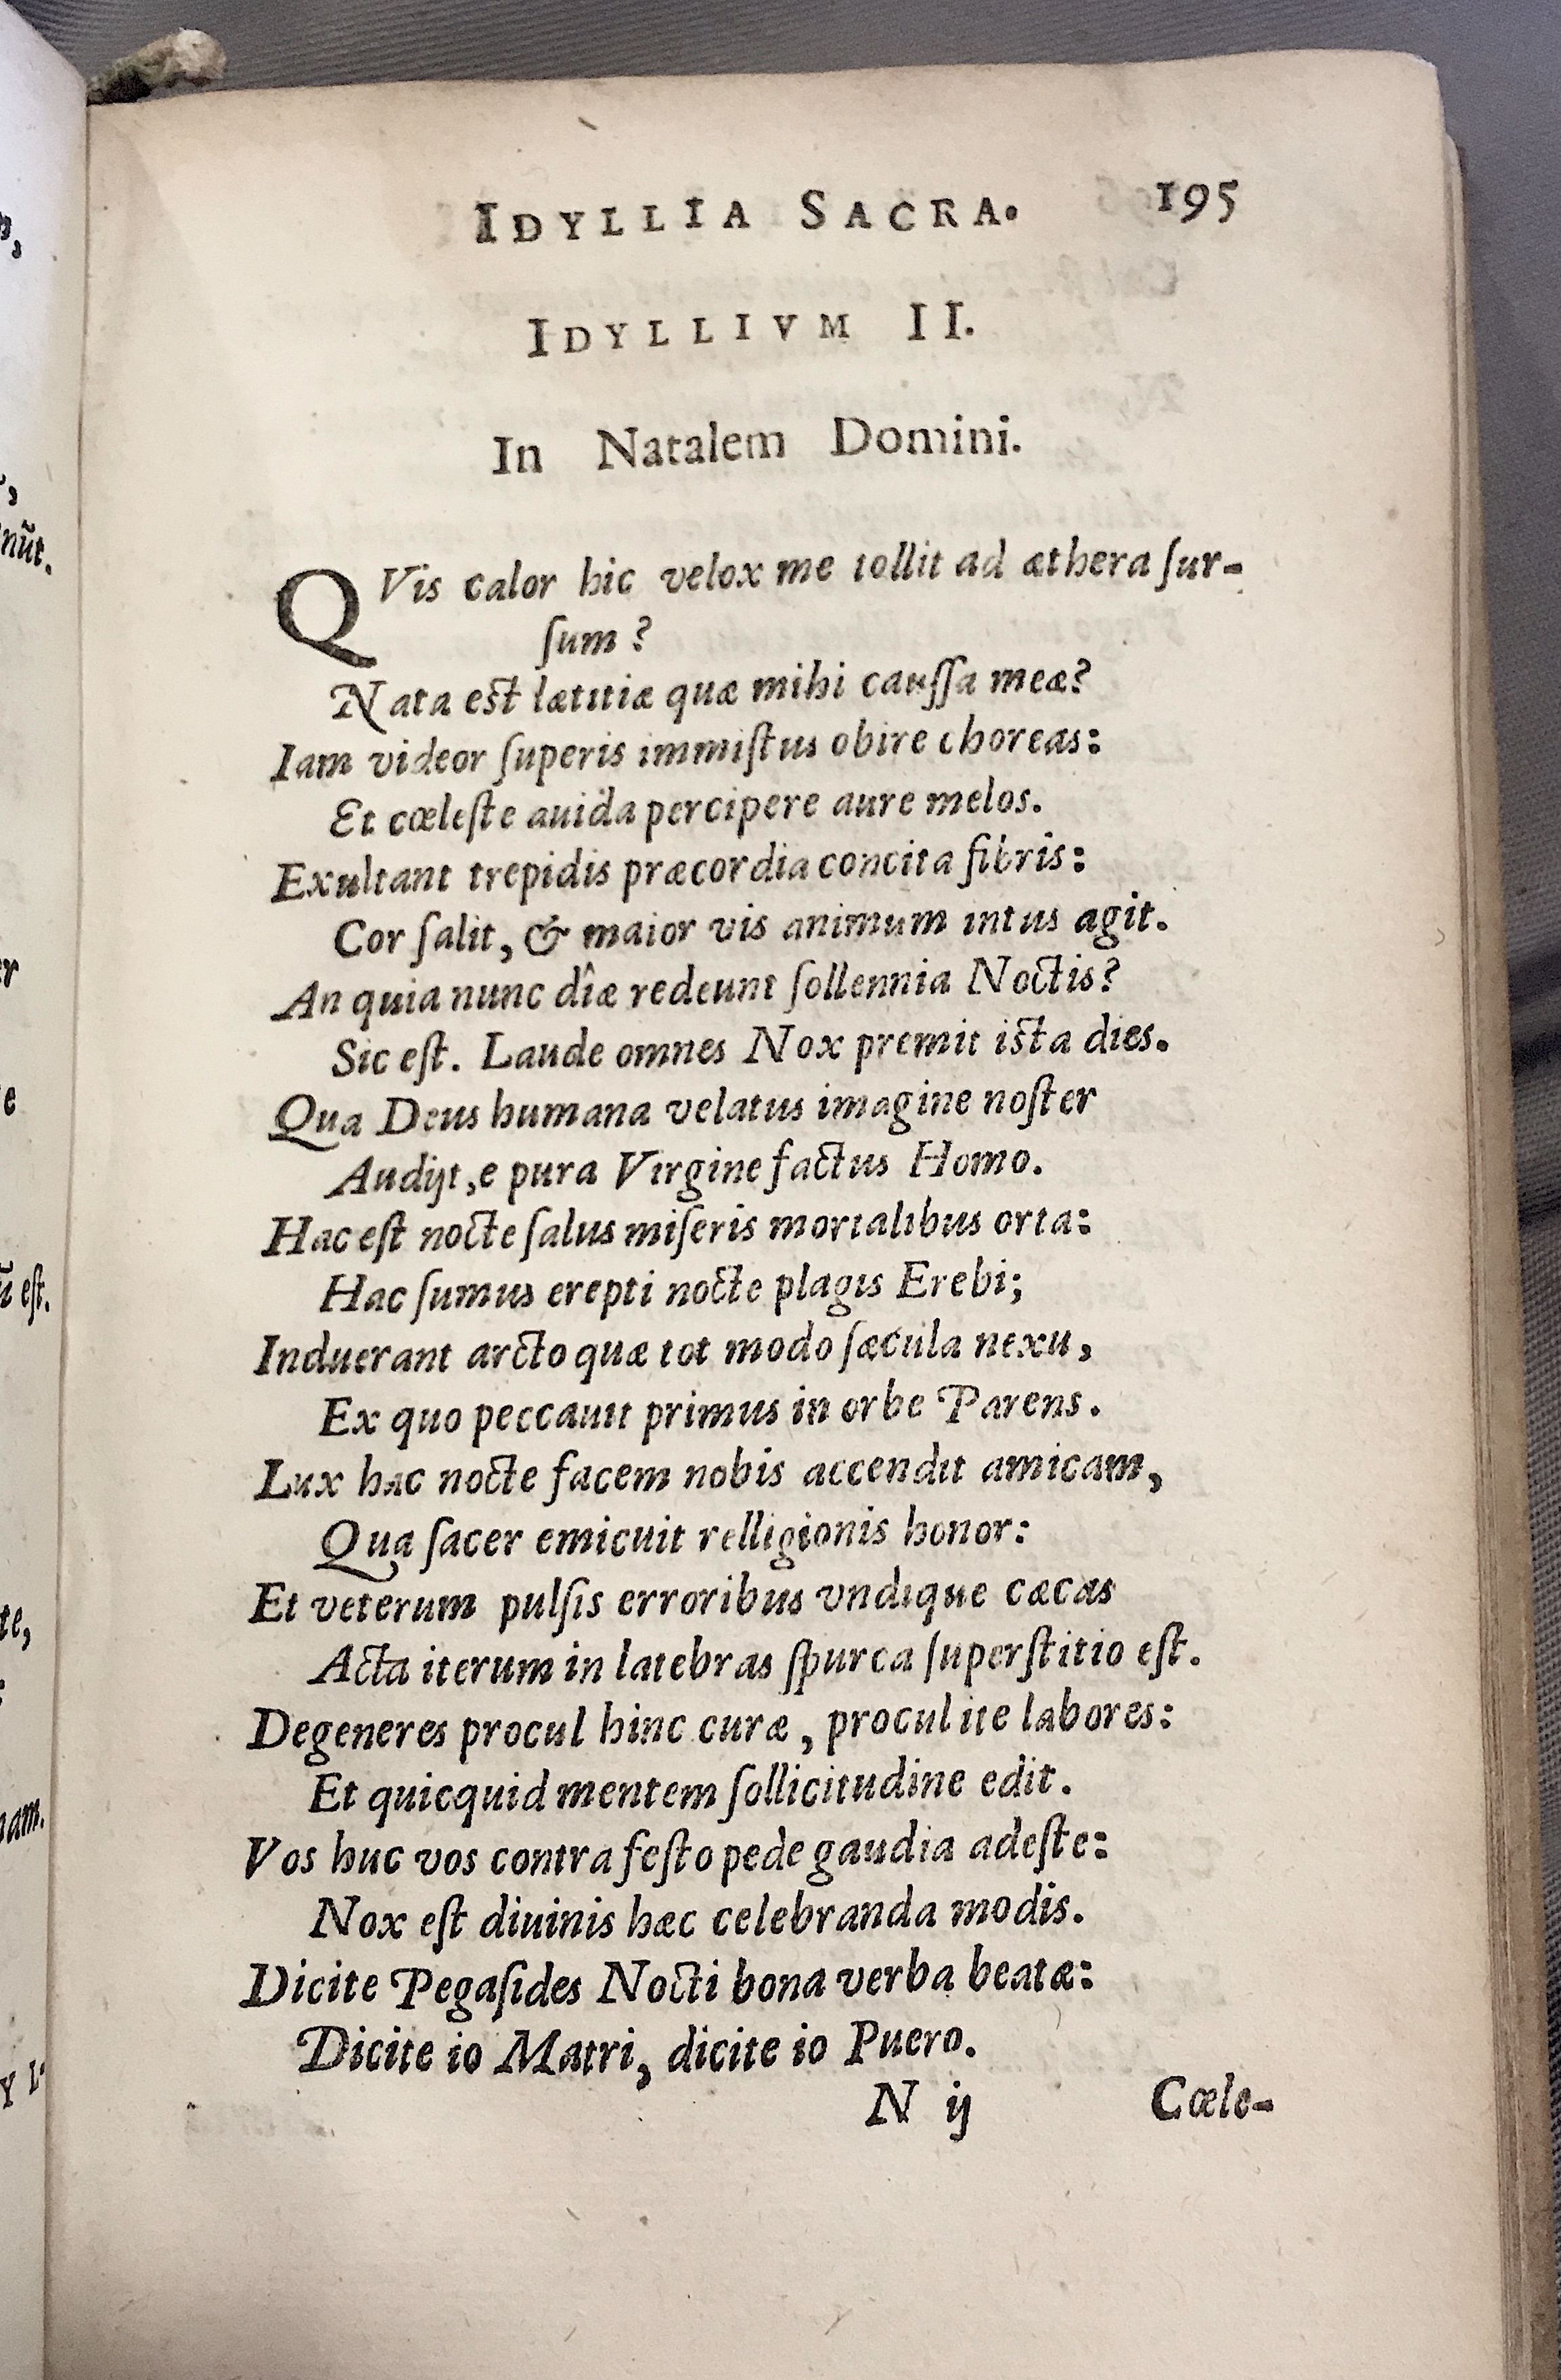 IDYLLIA SACRA. 195
IDYLLIVM II.
In Natalem Domini.
QVis calor hic velox me tollit ad æthera ſur-
ſum?
Nata est lætitiæ quæ mihi cauſſa meæ?
Iam videor ſuperis immiſtus obire choreas:
Et cœleſte auida percipere aure melos.
Exultant trepidis præcordia concita fibris:
Cor ſalit, & maior vis animum intus agit.
An quia nunc dîæ redeunt ſollennia Noctis?
Sic eſt. Laude omnes Nox premit ista dies.
Qua Deus humana velatus imagine noſter
Audijt, e pura Virgine factus Homo.
Hac eſt nocte ſalus miſeris mortalibus orta:
Hac ſumus erepti nocte plagis Erebi;
Induerant arcto quæ tot modo ſæcula nexu,
Ex quo peccauit primus in orbe Parens.
Lux hac nocte facem nobis accendit amicam,
Qua ſacer emicuit relligionis honor:
Et veterum pulſis erroribus vndique cæcas
Acta iterum in latebras ſpurca ſuperſtitio eſt.
Degeneres procul hinc curæ, procul ite labores:
Et quicquid mentem ſollicitudine edit.
Vos huc vos contra feſto pede gaudia adeſte:
Nox eſt diuinis hæc celebranda modis.
Dicite Pegaſides Nocti bona verba beatæ:
Dicite io Matri, dicite io Puero.
N ij Cœle-
nũt.
eſt.